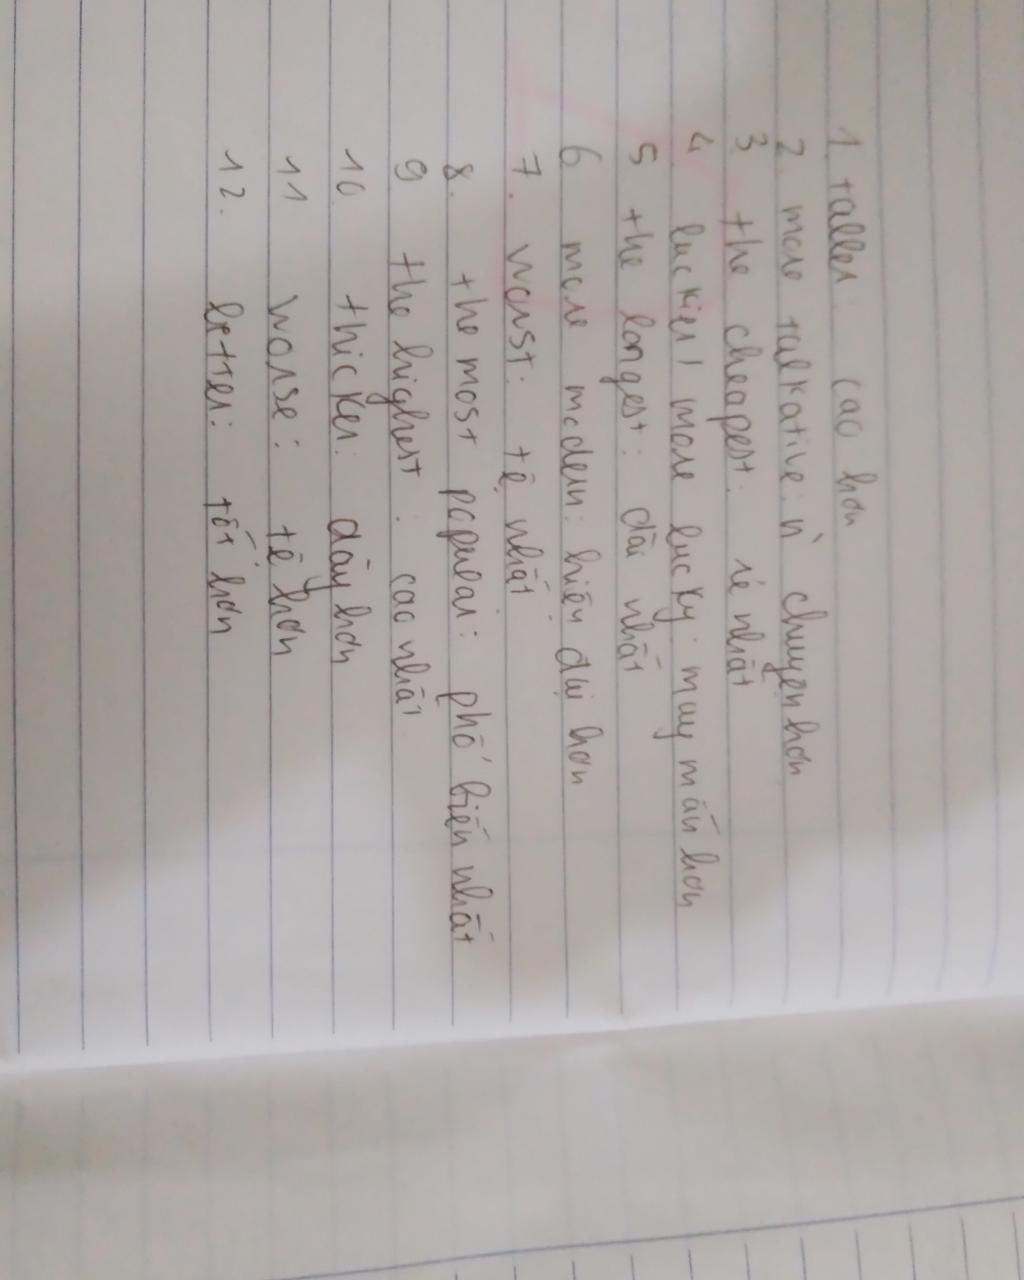 1. taller: cao hơn
2 more talkative: n' chuyện hơn
3 the cheapest: rẻ nhất
4 luckier / more lucky: may mắn hơn
5 the longest: dài nhất
6 more modern: hiện đại hơn
7. worst: tệ nhất
8. the most popular: phổ biến nhất
9 the highest: cao nhất
10. thicker: dày hơn
11 worse: tệ hơn
12. better: tốt hơn